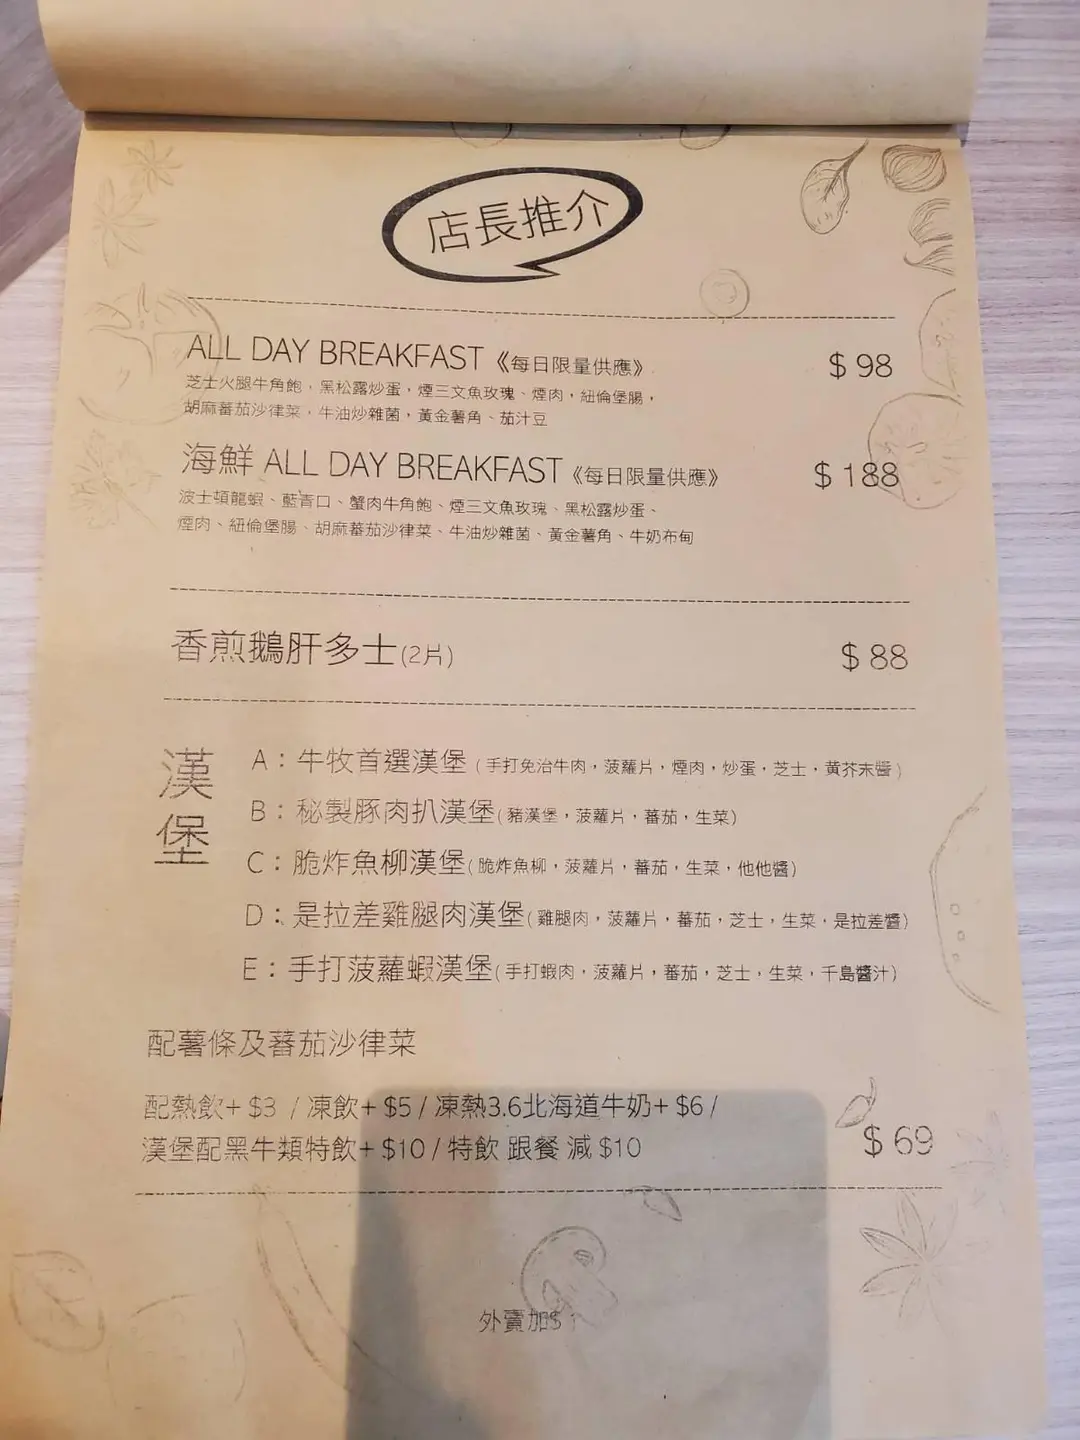 店長推介
ALL DAY BREAKFAST《每日限量供應》 $98
芝士火腿牛角飽，黑松露炒蛋，煙三文魚玫瑰、煙肉，紐倫堡腸，
胡麻蕃茄沙律菜，牛油炒雜菌，黃金薯角、茄汁豆
海鮮 ALL DAY BREAKFAST《每日限量供應》 $188
波士頓龍蝦、藍青口、蟹肉牛角飽、煙三文魚玫瑰、黑松露炒蛋、
煙肉、紐倫堡腸、胡麻蕃茄沙律菜、牛油炒雜菌、黃金薯角、牛奶布甸
香煎鵝肝多士(2片) $88
漢堡
A：牛牧首選漢堡（手打免治牛肉，菠蘿片，煙肉，炒蛋，芝士，黄芥末醬）
B：秘製豚肉扒漢堡(豬漢堡，菠蘿片，蕃茄，生菜)
C：脆炸魚柳漢堡(脆炸魚柳，菠蘿片，蕃茄，生菜，他他醬)
D：是拉差雞腿肉漢堡(雞腿肉，菠蘿片，蕃茄，芝士，生菜，是拉差醬)
E：手打菠蘿蝦漢堡(手打蝦肉，菠蘿片，蕃茄，芝士，生菜，千島醬汁)
配薯條及蕃茄沙律菜
配熱飲+ $3 / 凍飲+ $5 / 凍熱3.6北海道牛奶+ $6 /
漢堡配黑牛類特飲+ $10 / 特飲 跟餐 減 $10
$69
外賣加$